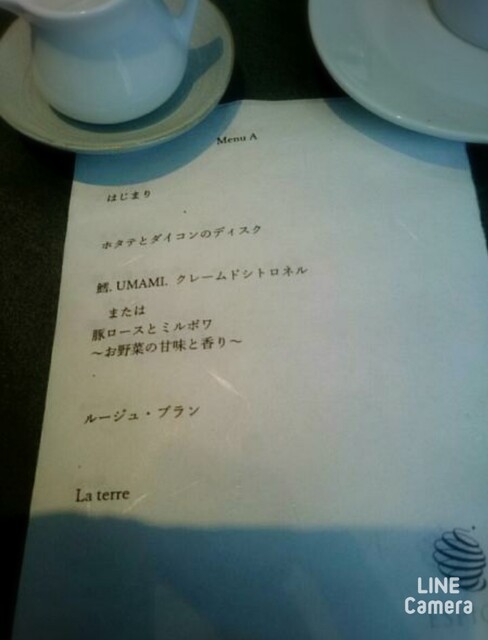 Menu A
はじまり
ホタテとダイコンのディスク
鱈. UMAMI. クレームドシトロネル
または
豚ロースとミルポワ
〜お野菜の甘味と香り〜
ルージュ・ブラン
La terre
LINE
Camera